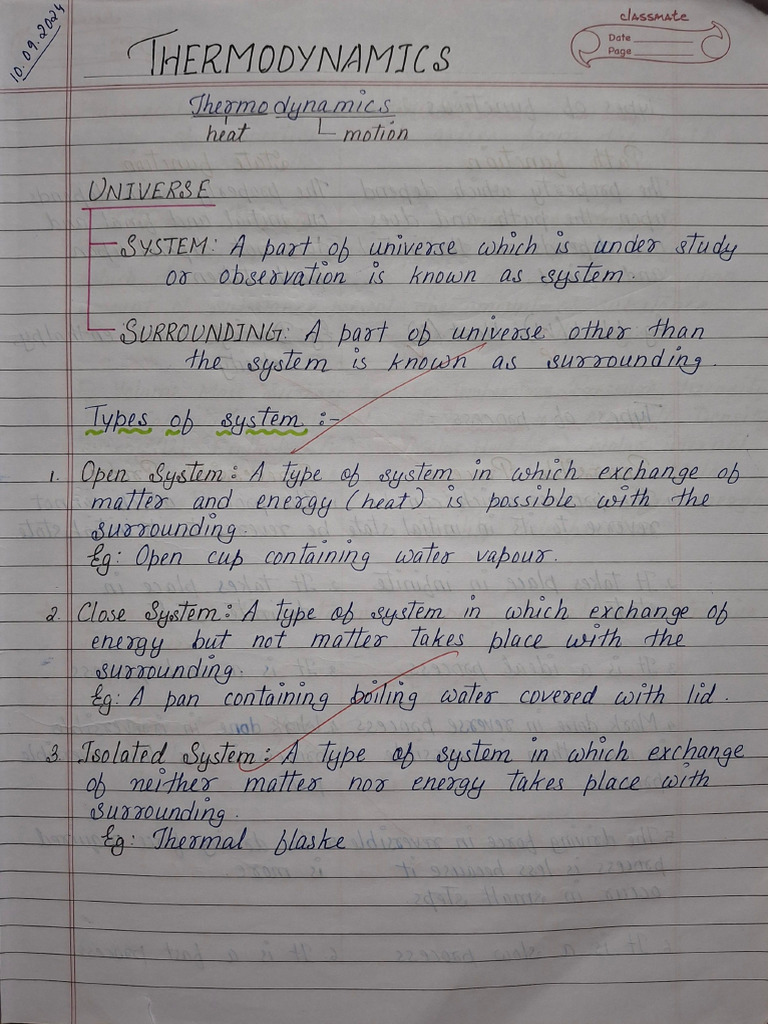 10.09.2024
classmate
Date
Page
THERMODYNAMICS
Thermodynamics
heat motion
UNIVERSE
SYSTEM: A part of universe which is under study
or observation is known as system.
SURROUNDING: A part of universe other than
the system is known as surrounding.
Types of system :-
1. Open System: A type of system in which exchange of
matter and energy (heat) is possible with the
surrounding.
Eg: Open cup containing water vapour.
2. Close System: A type of system in which exchange of
energy but not matter takes place with the
surrounding.
Eg: A pan containing boiling water covered with lid.
3. Isolated System: A type of system in which exchange
of neither matter nor energy takes place with
surrounding.
Eg: Thermal flaske